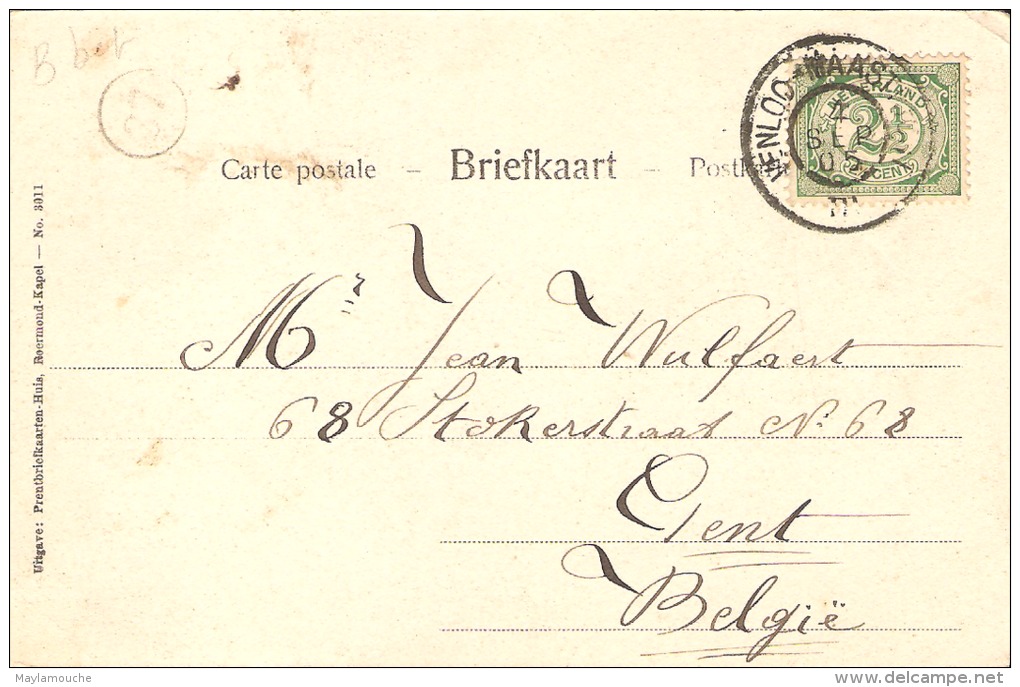 B b.t
Carte postale – Briefkaart – Postkarte
VENLOO-MAAST
4
SEP
05
III
NEDERLAND
2½
CENT
Mr Jean Wulfaert
68 Stokerstraat No. 68
Gent
België
Uitgave: Prentbriefkaarten-Huis, Roermond-Kapel — No. 3011
Maylamouche
www.delcampe.net